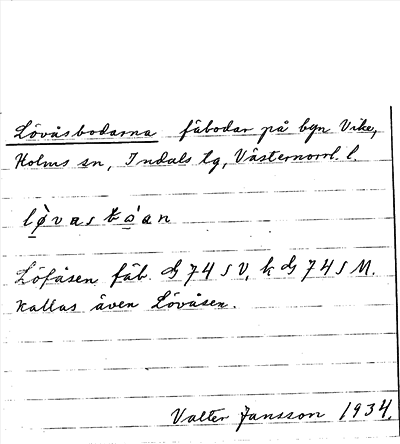 Lövåsbodarna fäbodar på byn Vike,
Holms sn, Indals tg, Västernorrl. l.
Löfåsen fäb. G 74 S V, k G 74 S M.
Kallas även Lövåsen.
Valter Jansson 1934.